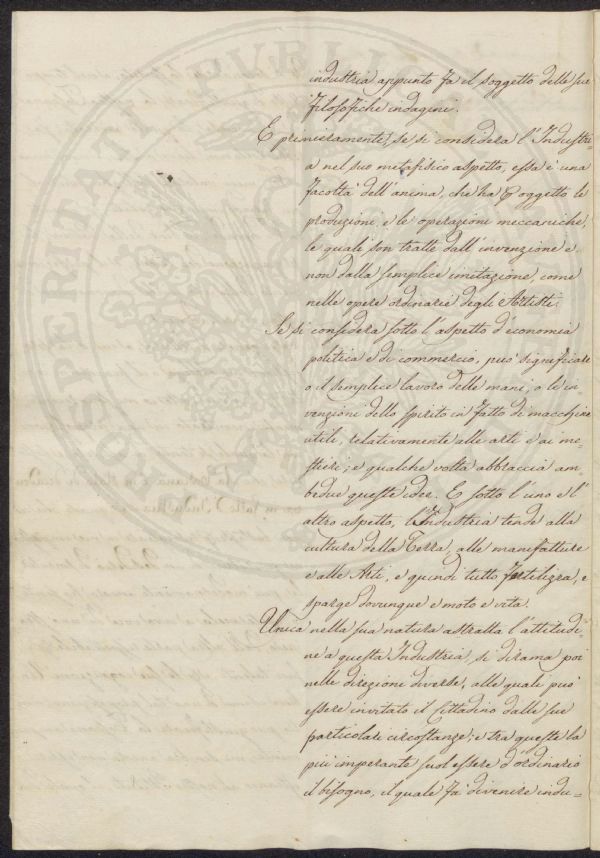 industria appunto fa il soggetto delle sue
filosofiche indagini.
E primieramente, se si considera l'Industri-
a nel suo metafisico aspetto, essa è una
facoltà dell'anima, che ha p oggetto le
produzioni, e le operazioni meccaniche,
le quali son tratte dall'invenzione e
non dalla semplice imitazione, come
nelle opere ordinarie degli Artisti.
Se si considera sotto l'aspetto d'economia
politica e di commercio, può significare
o il semplice lavoro delle mani, o le in-
venzioni dello spirito in fatto di macchine
utili, relativamente alle arti e ai me-
stieri; e qualche volta abbraccia am-
bedue queste idee. E sotto l'uno e l'
altro aspetto, l'Industria tende alla
cultura della Terra, alle manifatture
e alle Arti, e quindi tutto fertilizza, e
sparge dovunque e moto e vita.
Unica nella sua natura astratta l'attitudi-
ne a questa Industria, si dirama poi
nelle direzioni diverse, alle quali può
essere invitato il Cittadino dalle sue
particolari circostanze; e tra queste la
più imperante suol essere d'ordinario
il bisogno, il quale fa divenire indu-
PVBLI
ROSPERITATI